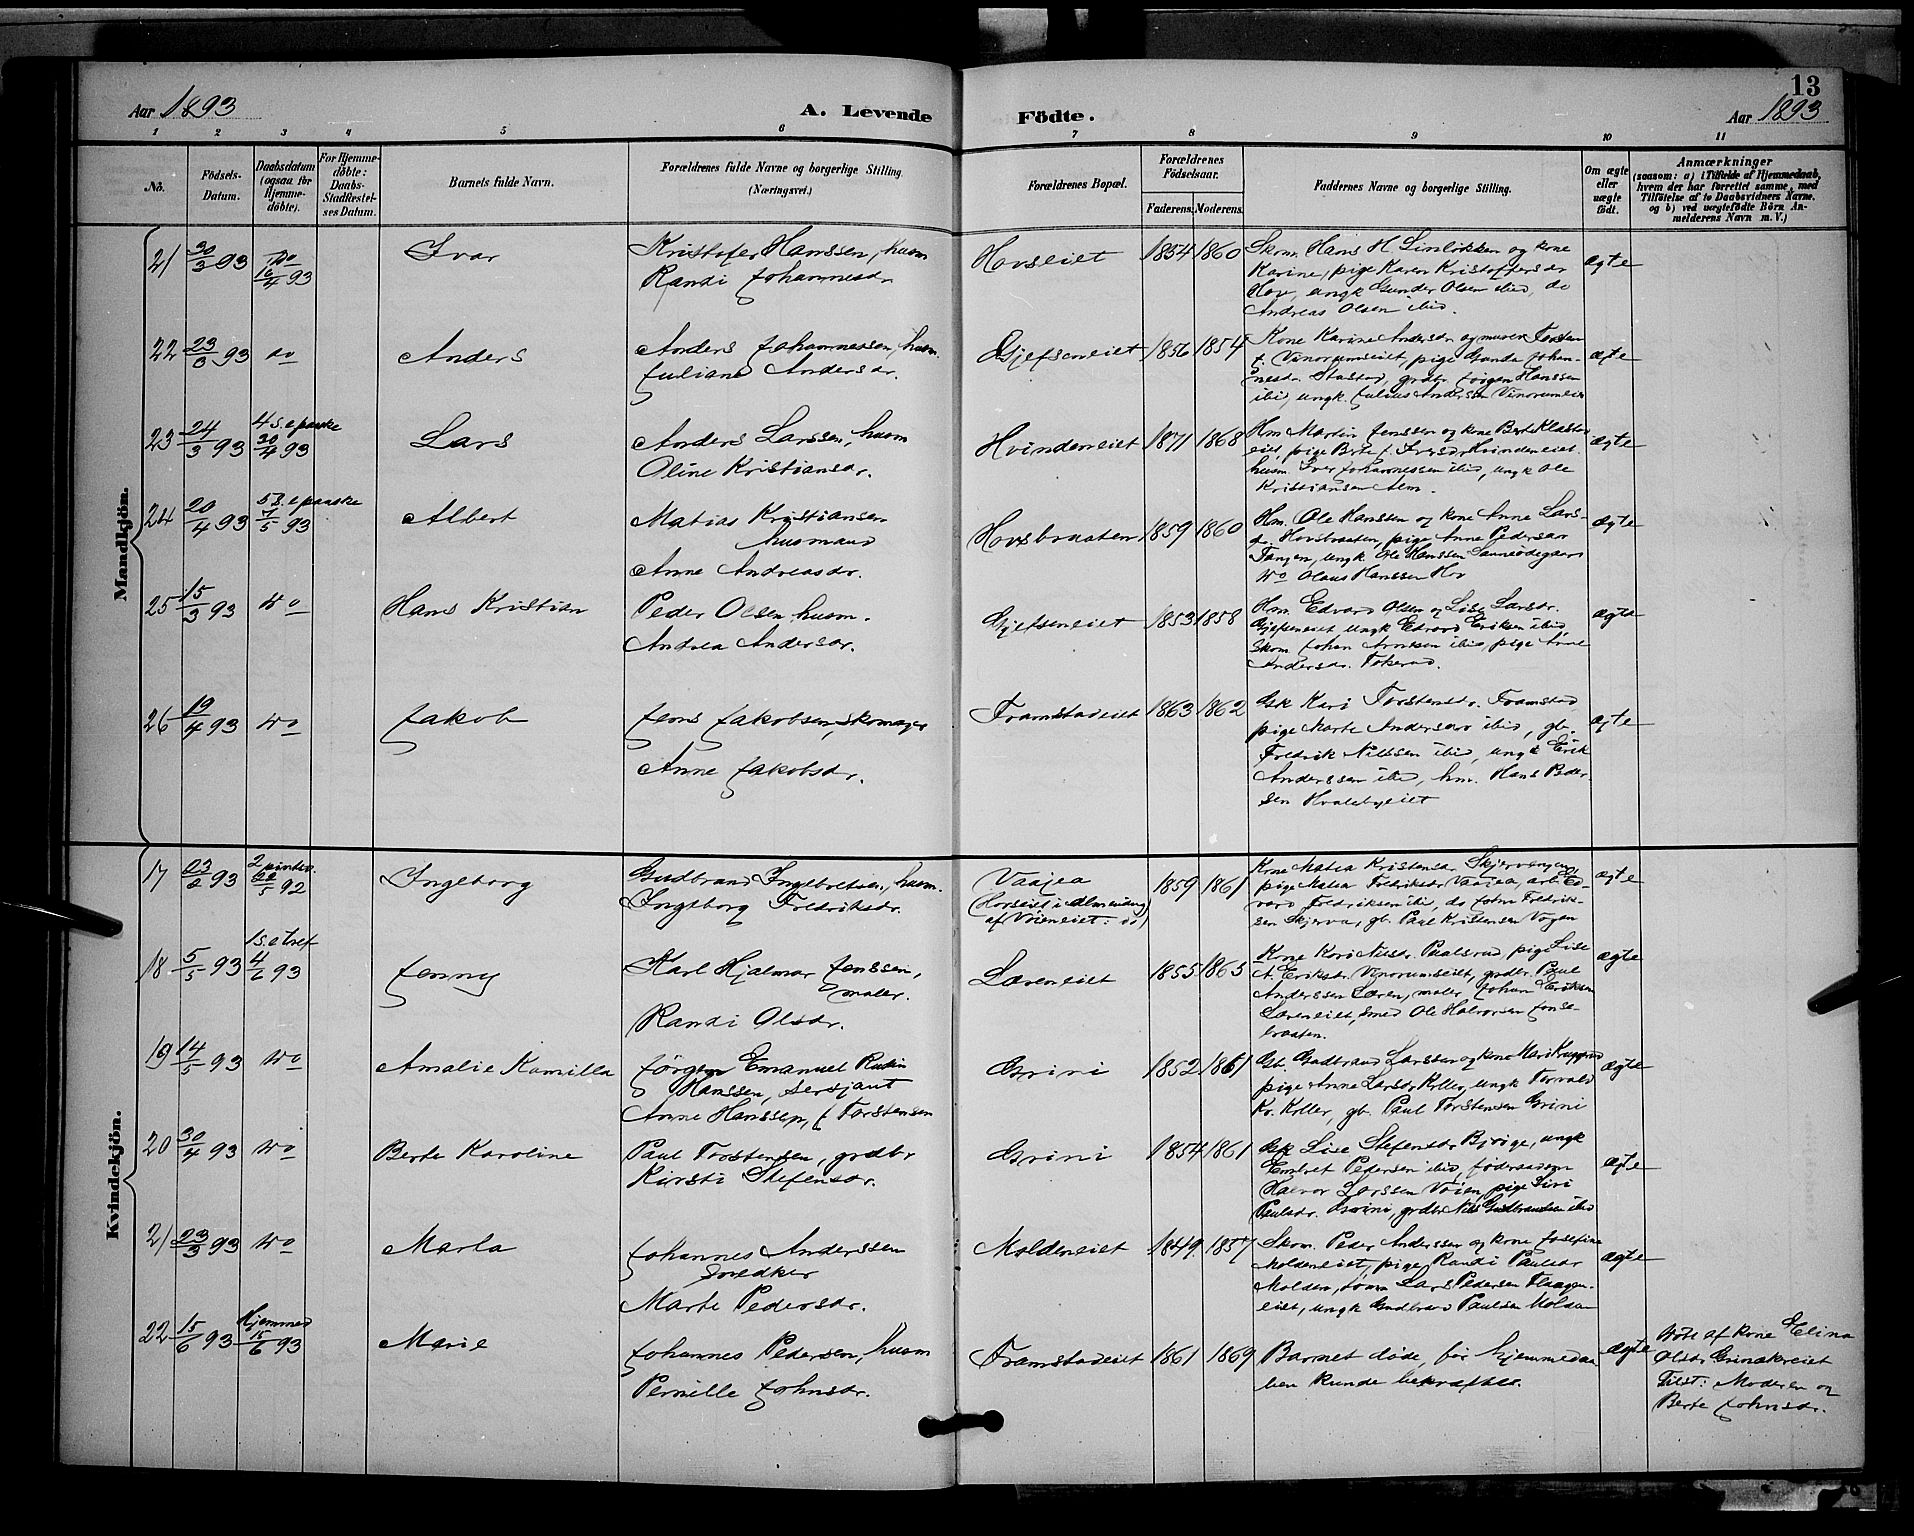 13
Aar 1893
A. Levende
Födte.
Aar 1893
1 2 3 4 5 6 7 8 9 10 11
No.
Födsels-
Datum.
Daabsdatum
(ogsaa for
Hjemme-
döbte).
For Hjemme-
döbte:
Daabs-
Stadfæstel-
ses Datum.
Barnets fulde Navn.
Forældrenes fulde Navne og borgerlige Stilling.
(Næringsvei.)
Forældrenes Bopæl.
Forældrenes
Födselsaar.
Faderens. Moderens.
Faddernes Navne og borgerlige Stilling.
Om ægte
eller
uægte
født.
Anmærkninger
(saasom: a) i Tilfælde af Hjemmedaab,
hvem der har forrettet samme, med
Tilföielse af to Daabsvidners Navne,
og b) ved uægtefödte Börn An-
melderens Navn m. V.)
Mandkjön.
21 30/3 93 do 16/4 93 Ivar Kristofer Hanssen, husm
Randi Johannesdr.
Hovseiet 1854 1860
Skom. Hans H Linløkken og kone
Karine, pige Karen Kristoffersdr
Hov, ungk Gunder Olsen ibid, do
Andreas Olsen ibid.
ægte
22 23/3 93 do Anders Anders Johannessen, husm.
Juliane Andersdr.
Gjefseneiet 1856 1854
Kone Karine Andersdr og murer Torsten
T. Vinorumseiet, pige Gunda Johan-
nesdr. Stastad, grdbr Jørgen Hanssen
ibid, ungk. Julius Anderssen Vinorumeie
ægte
23 24/3 93 4 s. e paaske 30/4 93 Lars Anders Larssen, husm
Oline Kristiansdr.
Hvindeneiet 1871 1868
Hm Martin Jenssen og kone Berte Klastad
eiet, pige Berte Iversdr Hvindeneiet
husm. Iver Johannessen ibid, ungk Ole
Kristiansen Alm.
ægte
24 20/4 93 5 s. e paaske 7/5 93 Albert Matias Kristiansen
husmand
Anne Andreasdr.
Hovsbraaten 1859 1860
Hm. Ole Hanssen og kone Anne Lars-
d. Hovsbraaten, pige Anne Pedersdr
Tangen, ungk Ole Hanssen
do Olaus Hanssen Hov
ægte
25 15/3 93 do Hans Kristian Peder Olsen husm.
Andrea Andersdr.
Gjefseneiet 1853 1858
Hm. Edvard Olsen og Lise Larsdr.
Gjefseneiet ungk Edvard Eriksen ibid
Skom Johan Arntsen ibid, pige Anne
Andersdr. Tokerud.
ægte
26 19/4 93 do Jakob Jens Jakobsen, skomager
Anne Jakobsdr.
Framstadeiet 1863 1862
Gk Kari Torstensdr. Framstad
pige Marte Andersdr ibid, gb.
Fredrik Nilssen ibid, ungk Erik
Anderssen ibid, hm. Hans Peder-
sen Hvalebyeiet
ægte
Kvindekjön.
17 23/2 93 2 pintsed. 22/5 92 Ingeborg Gudbrand Ingebretsen, husm.
Ingeborg Fredriksdr.
Vaajea
(Hovseiet i Almenning
af Voieneiet)
1859 1861
Kone Matea Kristensdr Skjervangen
pige Matea Fredriksdr Vaajea, arb Ed-
vard Fredriksen ibid, do John Fredrik-
sen Skjerva, gb. Paul Kristensen Vøyen
ægte
18 5/5 93 1 s. e tref 4/6 93 Jenny Karl Hjalmar Jenssen,
maler.
Randi Olsdr.
Læreneiet 1855 1865
Kone Kari Nilsdr. Paalsrud pige Lise
A. Eriksdr. Vinorumseiet, grdbr. Paul
Anderssen Læren, maler Johan Eriksen
Læreneiet, smed Ole Halvorsen Jonse-
braaten.
ægte
19 14/5 93 do Amalie Kamilla Jørgen Emanuel Rudin
Hanssen, Sersjant
Anne Hanssen, f Torstensen
Grini 1852 1861
Gb. Gudbrand Larssen og kone Mari
pige Anne Larsdr Koller, ungk Torvald
Kr. Koller, gb. Paul Torstensen Grini
ægte
20 30/4 93 do Berte Karoline Paul Torstensen, grdbr
Kirsti Stefensdr.
Grini 1854 1861
Gk Lise Stefensdr Bjøige, ungk
Embret Pedersen ibid, føderaadsm
Halvor Larssen Voien, pige Siri
Paulsdr. Grini, grdbr Nils Gudbrandsen ibid
ægte
21 23/3 93 do Marta Johannes Anderssen
snedker
Marte Pedersdr.
Moldeneiet 1849. 1857
Skom. Peder Anderssen og kone Josefine
Moldeneiet, pige Randi Paulsdr
Molden, Lars Pedersen Flaagen-
eiet, ungk Gudbrand Paulsen Molden
ægte
22 15/6 93 Hjemmed 15/6 93 Marie Johannes Pedersen, husm
Pernille Johnsdr.
Framstadeiet 1861 1869
Barnet døde, før hjemmedaa-
ben kunde bekræftes.
ægte
Døbt af kone Elina
Olsdr Grinakereiet
Tilst: Moderen og
Berte Johnsdr.